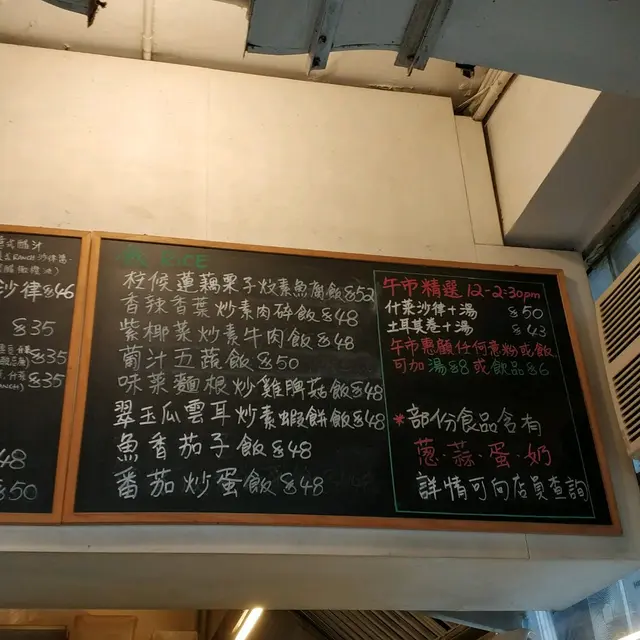 沙律&46
&35
&35
&35
48
&50
飯 RICE
柱候蓮藕栗子炆素魚腐飯&52
香辣香葉炒素肉碎飯&48
紫椰菜炒素牛肉飯&48
葡汁五蔬飯&50
味菜麵根炒雞脾菇飯&48
翠玉瓜雲耳炒素蝦餅飯&48
魚香茄子飯&48
番茄炒蛋飯&48
午市精選 12-2:30pm
什菜沙律+湯 &50
土耳其卷+湯 &43
午市惠顧任何意粉或飯
可加 湯&8 或 飲品&6
*部份食品含有
蔥·蒜·蛋·奶
詳情可向店員查詢